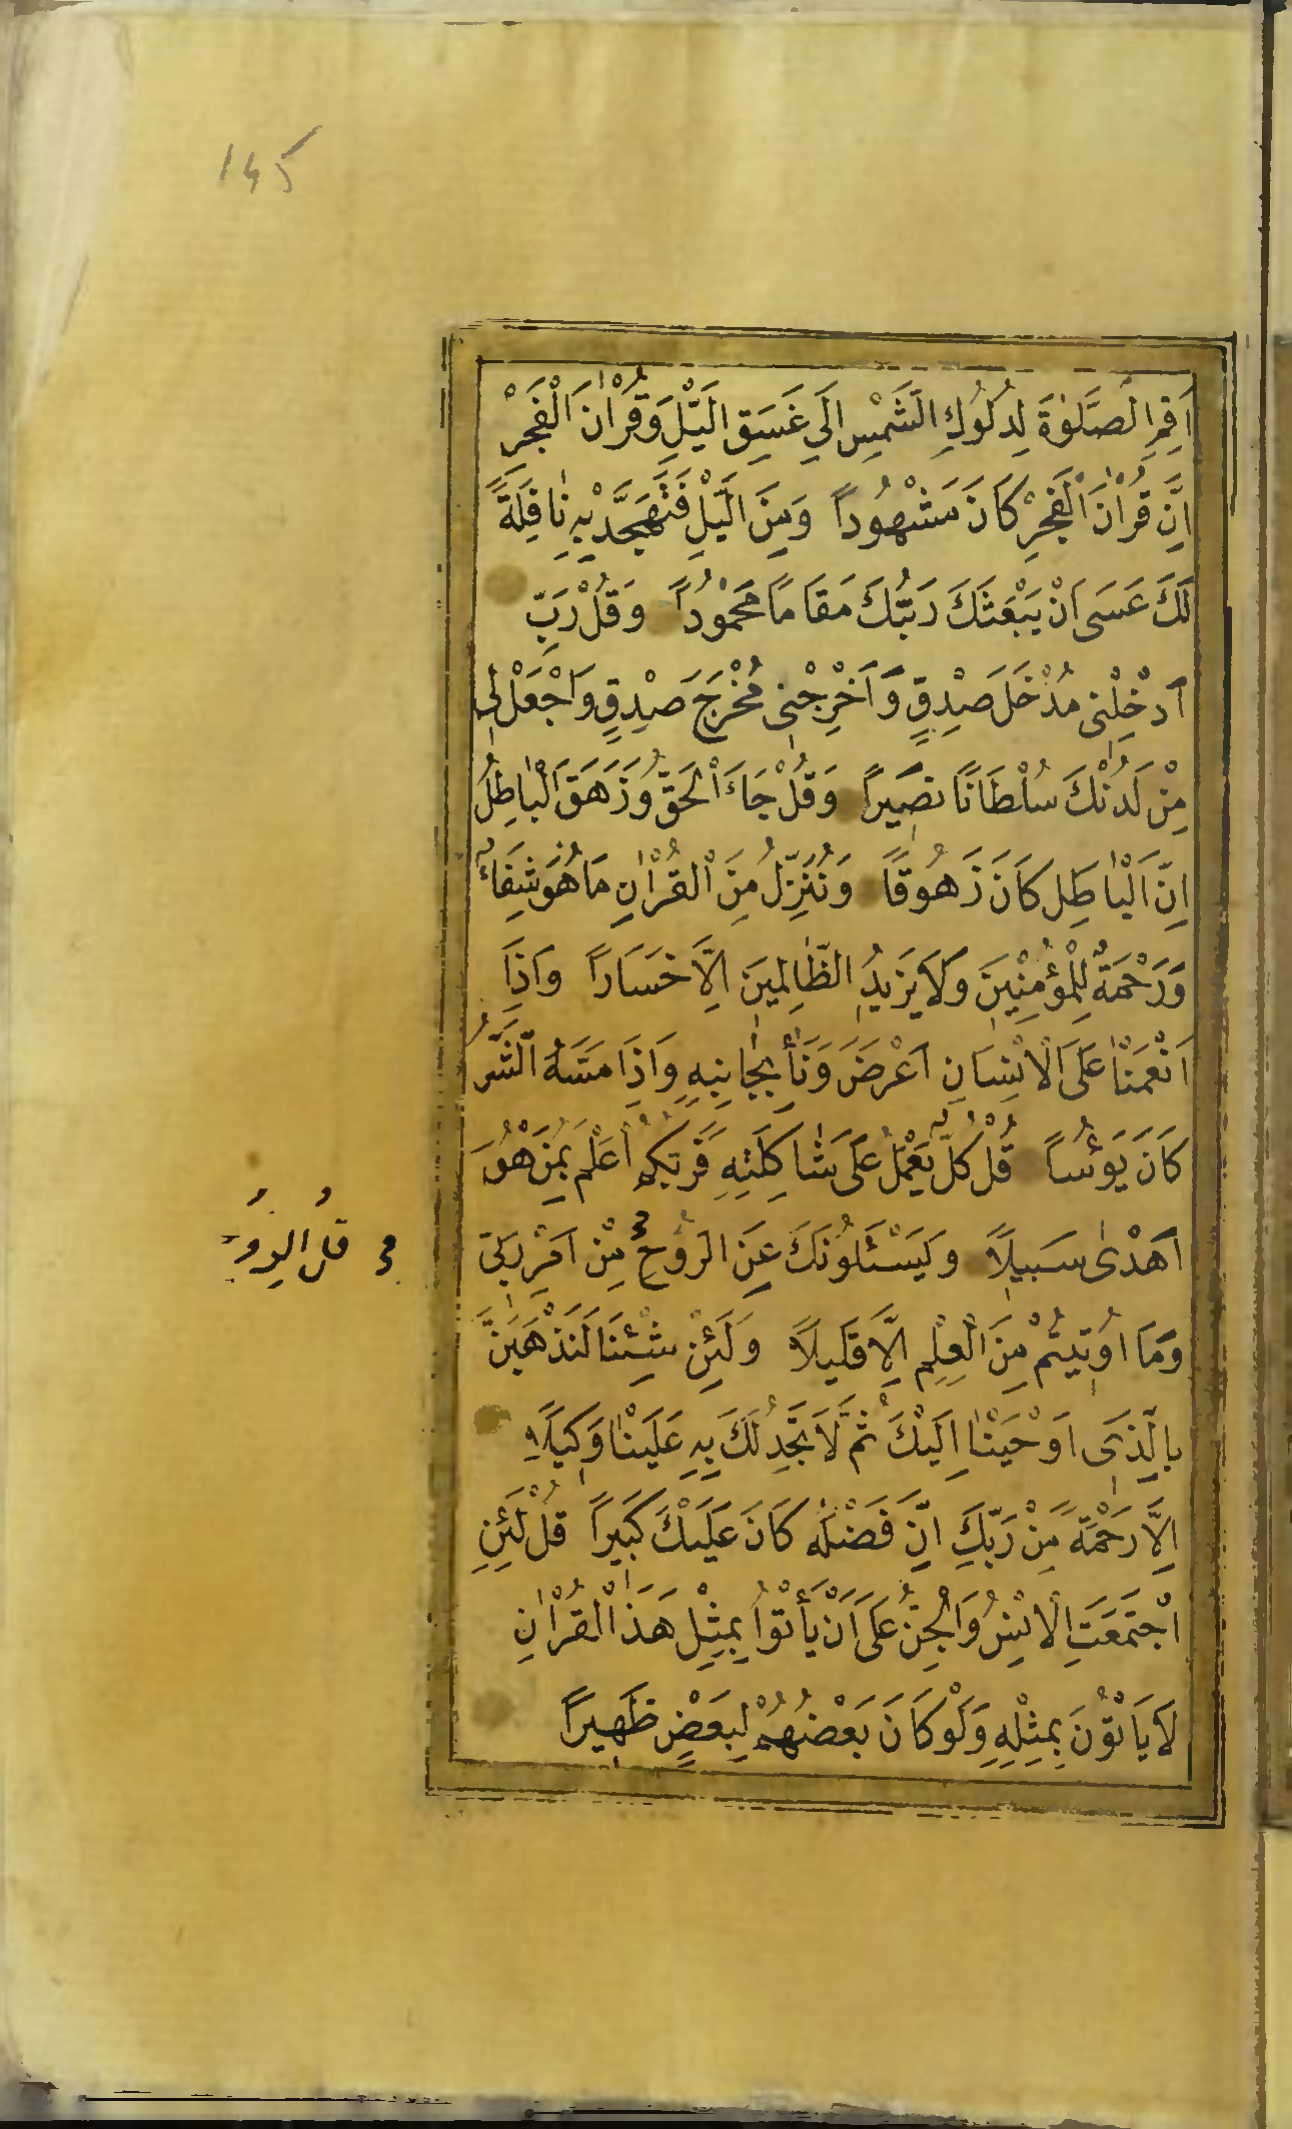 145
اَقِمِ الصَّلٰوةَ لِدُلُوكِ الشَّمْسِ اِلَى غَسَقِ الَّيْلِ وَقُرْاٰنَ الْفَجْرِ
اِنَّ قُرْاٰنَ الْفَجْرِ كَانَ مَشْهُوداً وَمِنَ الَّيْلِ فَتَهَجَّدْ بِهِ نَافِلَةً
لَكَ عَسَى اَنْ يَبْعَثَكَ رَبُّكَ مَقَامًا مَحْمُوْداً وَقُلْ رَبِّ
اَدْخِلْنِى مُدْخَلَ صِدْقٍ وَاَخْرِجْنِى مُخْرَجَ صِدْقٍ وَاجْعَلْ لِى
مِنْ لَدُنْكَ سُلْطَانًا نَصِيراً وَقُلْ جَاءَ الْحَقُّ وَزَهَقَ الْبَاطِلُ
اِنَّ الْبَاطِلَ كَانَ زَهُوقًا وَنُنَزِّلُ مِنَ الْقُرْاٰنِ مَا هُوَ شِفَاءٌ
وَرَحْمَةٌ لِلْمُؤْمِنِيْنَ وَلَا يَزِيدُ الظَّالِمِينَ اِلَّا خَسَاراً وَاِذَا
اَنْعَمْنَا عَلَى الْاِنْسَانِ اَعْرَضَ وَنَأٰ بِجَانِبِهِ وَاِذَا مَسَّهُ الشَّرُّ
كَانَ يَؤُساً قُلْ كُلٌّ يَعْمَلُ عَلَى شَاكِلَتِهِ فَرَبُّكُمْ اَعْلَمُ بِمَنْ هُوَ
اَهْدٰى سَبِيلاً وَيَسْئَلُونَكَ عَنِ الرُّوْحِ مِنْ اَمْرِ رَبِّى
قل الرو
وَمَا اُوتِيتُمْ مِنَ الْعِلْمِ اِلَّا قَلِيلاً وَلَئِنْ شِئْنَا لَنَذْهَبَنَّ
بِالَّذِى اَوْحَيْنَا اِلَيْكَ ثُمَّ لَا تَجِدُ لَكَ بِهِ عَلَيْنَا وَكِيلاً
اِلَّا رَحْمَةً مِنْ رَبِّكَ اِنَّ فَضْلَهُ كَانَ عَلَيْكَ كَبِيراً قُلْ لَئِنِ
اجْتَمَعَتِ الْاِنْسُ وَالْجِنُّ عَلَى اَنْ يَأْتُوا بِمِثْلِ هَذَا الْقُرْاٰنِ
لَا يَاْتُوْنَ بِمِثْلِهِ وَلَوْ كَانَ بَعْضُهُمْ لِبَعْضٍ ظَهِيراً